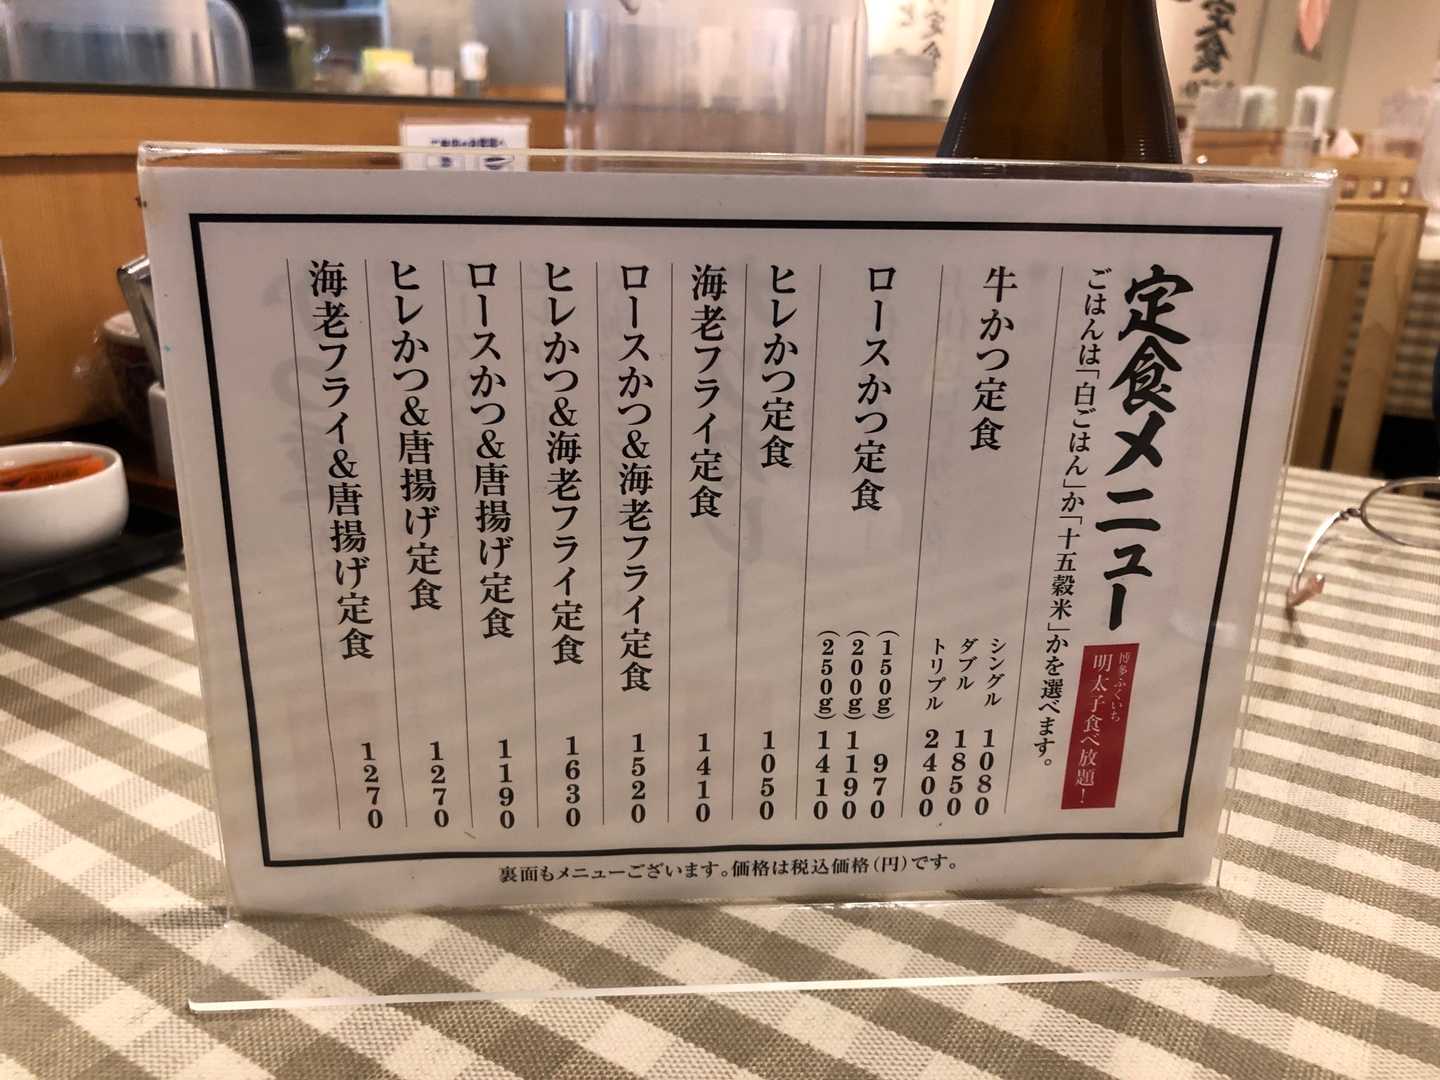 定食メニュー
博多ふくいち
明太子食べ放題！
ごはんは「白ごはん」か「十五穀米」かを選べます。
牛かつ定食
シングル 1080
ダブル 1850
トリプル 2400
ロースかつ定食
(150g) 970
(200g) 1190
(250g) 1410
ヒレかつ定食 1050
海老フライ定食 1410
ロースかつ&海老フライ定食 1520
ヒレかつ&海老フライ定食 1630
ロースかつ&唐揚げ定食 1190
ヒレかつ&唐揚げ定食 1270
海老フライ&唐揚げ定食 1270
裏面もメニューございます。価格は税込価格(円)です。
定食
定食